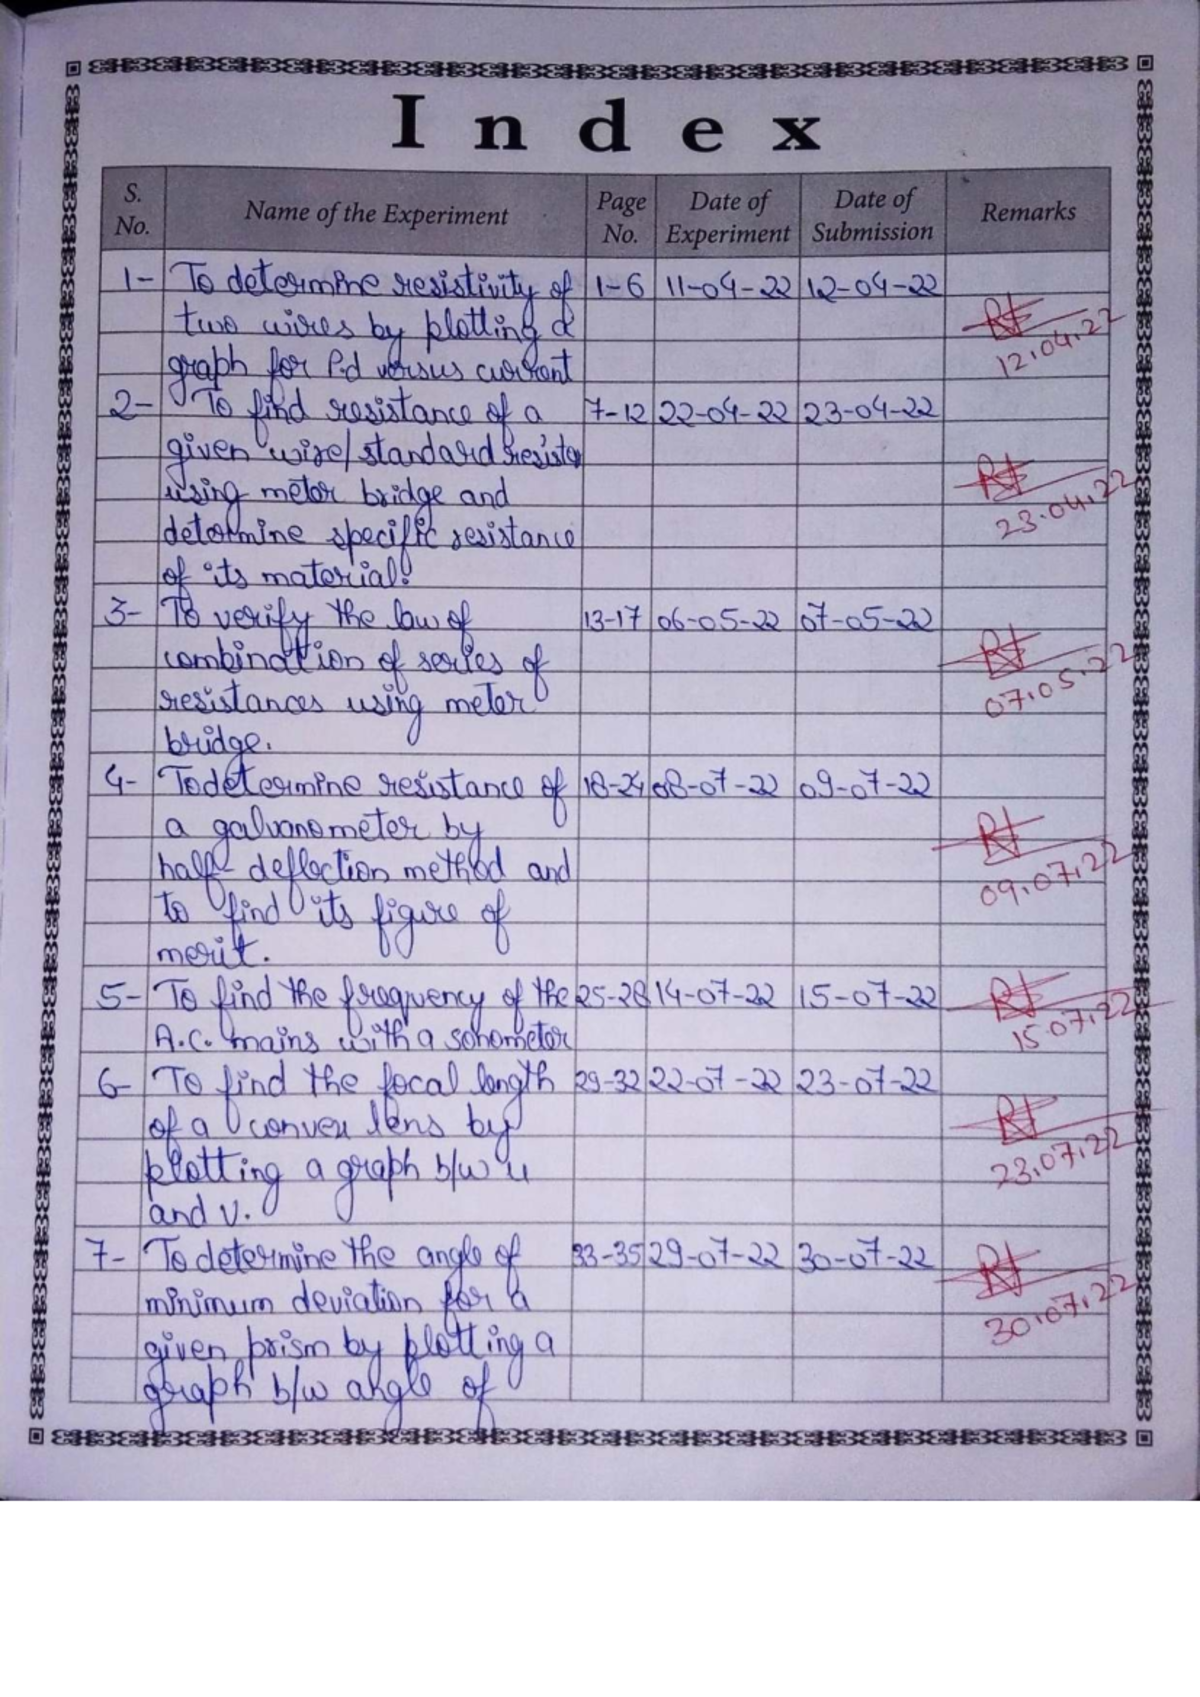 Index
S. No. Name of the Experiment Page No. Date of Experiment Date of Submission Remarks
1- To determine resistivity of 1-6 11-04-22 12-04-22
two wires by plotting a
12.04.22
graph for P.d versus current
2- To find resistance of a 7-12 22-04-22 23-04-22
given wire/standard resistor
using meter bridge and
23.04.22
determine specific resistance
of its material.
3- To verify the law of 13-17 06-05-22 07-05-22
combination of series of
resistances using meter
07.05.22
bridge.
4- To determine resistance of 18-24 08-07-22 09-07-22
a galvanometer by
half-deflection method and
09.07.22
to find its figure of
merit.
5- To find the frequency of the 25-28 14-07-22 15-07-22
A.C. mains with a sonometer
15.07.22
6- To find the focal length 29-32 22-07-22 23-07-22
of a convex lens by
plotting a graph b/w u
23.07.22
and v.
7- To determine the angle of 33-35 29-07-22 30-07-22
minimum deviation for a
30.07.22
given prism by plotting a
graph b/w angle of